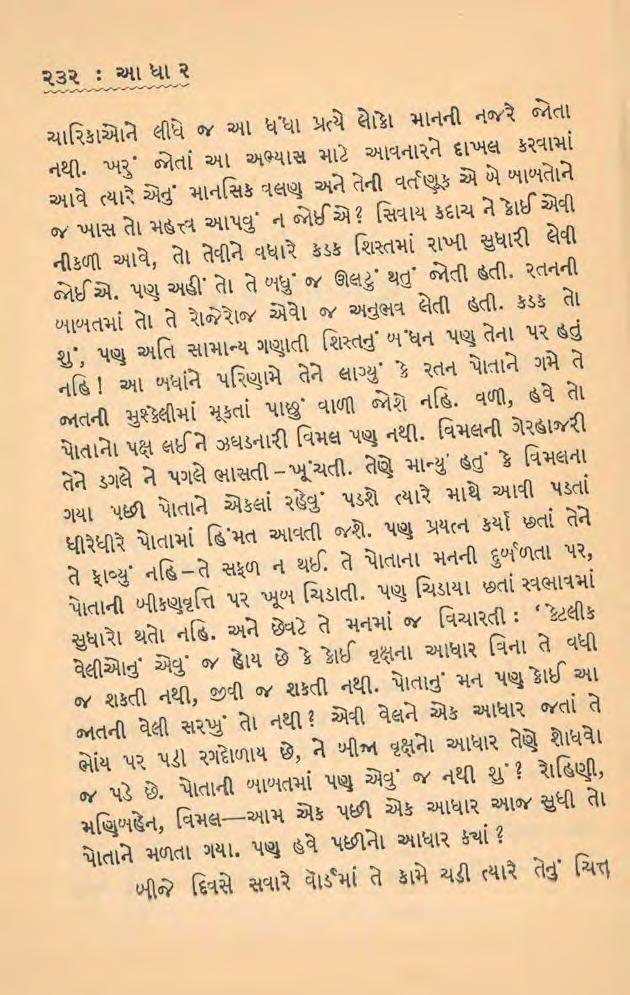 ૨૩૨ : આ ધા ર
ચારિકાઓને લીધે જ આ ધંધા પ્રત્યે લોકો માનની નજરે જોતા
નથી. ખરું જોતાં આ અભ્યાસ માટે આવનારને દાખલ કરવામાં
આવે ત્યારે એનું માનસિક વલણ અને તેની વર્તણૂક એ બે બાબતોને
જ ખાસ તો મહત્ત્વ આપવું ન જોઈએ? સિવાય કદાચ ને કોઈ એવી
નીકળી આવે, તો તેવીને વધારે કડક શિસ્તમાં રાખી સુધારી લેવી
જોઈએ. પણ અહીં તો તે બધું જ ઊલટું થતું જોતી હતી. રતનની
બાબતમાં તો તે રોજેરોજ એવો જ અનુભવ લેતી હતી. કડક તો
શું, પણ અતિ સામાન્ય ગણાતી શિસ્તનું બંધન પણ તેના પર હતું
નહિ! આ બધાંને પરિણામે તેને લાગ્યું કે રતન પોતાને ગમે તે
જાતની મુશ્કેલીમાં મૂકતાં પાછું વાળી જોશે નહિ. વળી, હવે તો
પોતાનો પક્ષ લઈને ઝઘડનારી વિમલ પણ નથી. વિમલની ગેરહાજરી
તેને ડગલે ને પગલે ભાસતી–ખૂંચતી. તેણે માન્યું હતું કે વિમલના
ગયા પછી પોતાને એકલાં રહેવું પડશે ત્યારે માથે આવી પડતાં
ધીરેધીરે પોતામાં હિંમત આવતી જશે. પણ પ્રયત્ન કર્યા છતાં તેને
તે ફાવ્યું નહિ–તે સફળ ન થઈ. તે પોતાના મનની દુર્બળતા પર,
પોતાની બીકણવૃત્તિ પર ખૂબ ચિડાતી. પણ ચિડાયા છતાં સ્વભાવમાં
સુધારો થતો નહિ. અને છેવટે તે મનમાં જ વિચારતી : ‘કેટલીક
વેલીઓનું એવું જ હોય છે કે કોઈ વૃક્ષના આધાર વિના તે વધી
જ શકતી નથી, જીવી જ શકતી નથી. પોતાનું મન પણ કોઈ આ
જાતની વેલી સરખું તો નથી? એવી વેલને એક આધાર જતાં તે
ભોંય પર પડી રગદોળાય છે, ને બીજા વૃક્ષનો આધાર તેણે શોધવો
જ પડે છે. પોતાની બાબતમાં પણ એવું જ નથી શું? રોહિણી,
મણિબહેન, વિમલ—આમ એક પછી એક આધાર આજ સુધી તો
પોતાને મળતા ગયા. પણ હવે પછીનો આધાર ક્યાં?
બીજે દિવસે સવારે વૉર્ડમાં તે કામે ચડી ત્યારે તેનું ચિત્ત